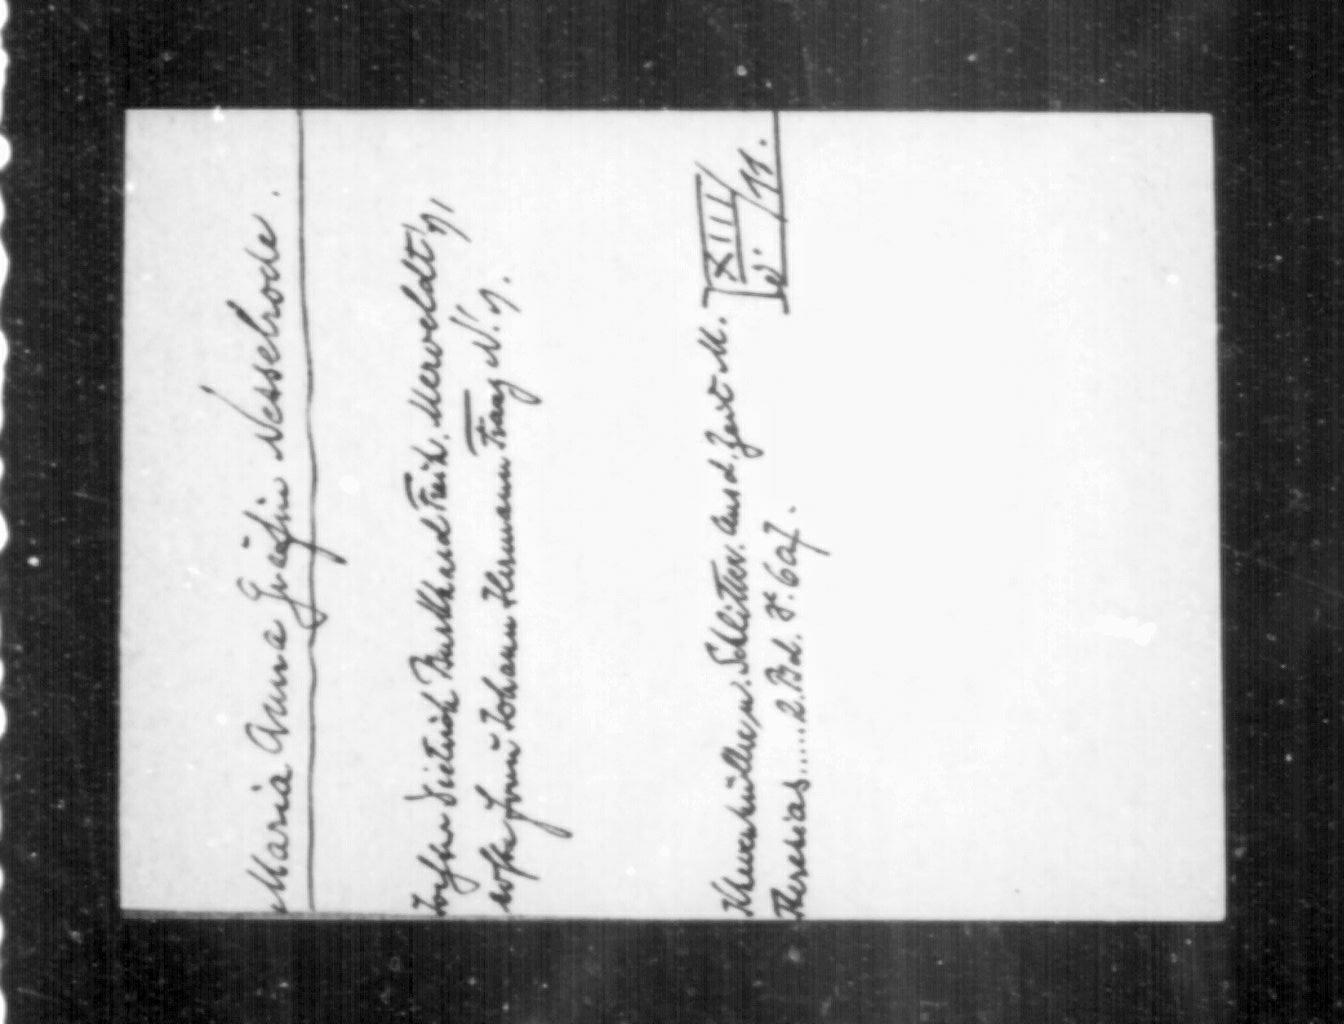 Maria Anna Gräfin Nesselrode.
Tochter Dietrich Burkhard Freih. Merveldt's,
Johann Hermann Franz N.'s.
Khevenhüller u. Schlitter. Aus d. Zeit M.
Theresias.....2. Bd. S. 6a7.
XIII/11.